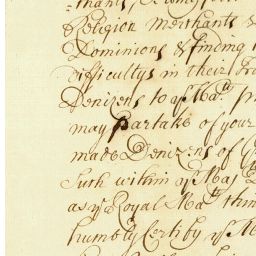 Religion Merchants &
Dominions & finding
Difficultys in their Tra
Denizens to yr Matys
may partake of your
made Denizens of
Such within yr Maj
as yr Royall Maty thin
humbly Certify yr M